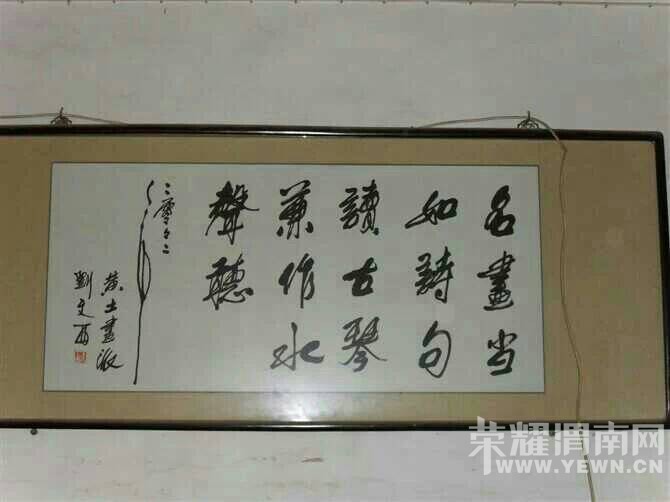 名畫当
如詩句
讀古琴
兼作水
聲聽
二零々二年
黄土畫派
劉文西
荣耀渭南网
WWW.YEWN.CN